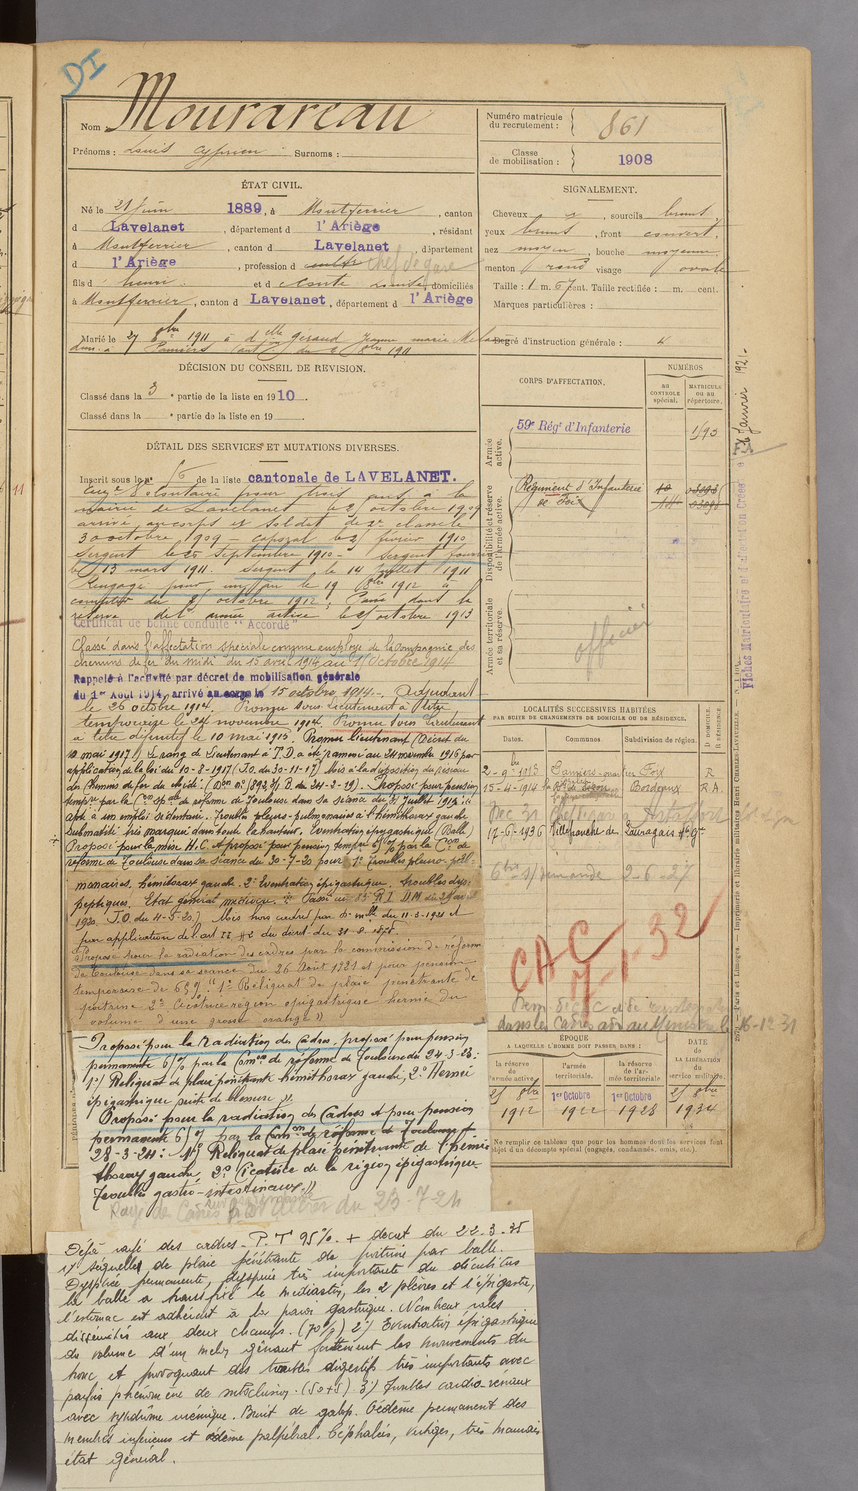 DI
Nom Mourareau
Prénoms : Louis Cyprien Surnoms :
Numéro matricule du recrutement : 861
Classe de mobilisation : 1908
ÉTAT CIVIL.
Né le 21 Juin 1889, à Montferrier, canton
d Lavelanet, département d l'Ariège, résidant
à Montferrier, canton d Lavelanet, département
d l'Ariège, profession d chef de gare
fils d henri et d domiciliés
à Montferrier, canton d Lavelanet, département d l'Ariège
Marié le 27 8bre 1911 à delle Géraud Jeanne marie
SIGNALEMENT.
Cheveux sourcils bruns
yeux bruns, front couvert,
nez moyen, bouche moyenne,
menton rond visage ovale
Taille : 1 m. 67 cent. Taille rectifiée : m. cent.
Marques particulières :
Degré d'instruction générale :
DÉCISION DU CONSEIL DE REVISION.
Classé dans la 3e partie de la liste en 1910.
Classé dans la e partie de la liste en 19
DÉTAIL DES SERVICES ET MUTATIONS DIVERSES.
Inscrit sous le n° 16 de la liste cantonale de LAVELANET.
Engé Volontaire pour trois ans à la
mairie de Lavelanet le 2 octobre 1909
arrivé au corps et soldat de 2e classe le
3 octobre 1909 - caporal le 21 février 1910
Sergent le 25 Septembre 1910 - Sergent fourrier
le 13 mars 1911. Sergent le 14 Juillet 1911
Rengagé pour un an le 19 8bre 1912 à
compter du 2 octobre 1912. Passé dans la
réserve de l'armée active le 2 octobre 1913
Certificat de bonne conduite "Accordé"
Classé dans l'affectation spéciale comme employé de la Compagnie des
chemins de fer du midi du 15 avril 1914 au 1 Octobre 1914
Rappelé à l'activité par décret de mobilisation générale
du 1er Août 1914, arrivé au corps le 15 octobre 1914. Adjudant
le 26 octobre 1914. Promu sous-lieutenant à titre
temporaire le 24 novembre 1914. Promu sous Lieutenant
à titre définitif le 10 mai 1915. Promu lieutenant (Décret du
10 mai 1917). Le rang de Lieutenant à T.D. a été ramené au 24 novembre 1916 par
application de la loi du 10-8-1917 (J.O. du 30-11-17) Mis à la disposition du réseau
des Chemins de fer du Midi. Proposé pour pension
tempre par la Con spale de réforme de Toulouse dans sa séance du 31 Juillet 1919
apte à un emploi sédentaire. Troubles pleuro-pulmonaires à l'hémithorax gauche
submatité très marquée dans toute la hauteur. Eventration épigastrique (Balle)
Proposé pour la mise H.C. et proposé pour pension tempre 65% par la Con de
réforme de Toulouse dans sa séance du 30-7-20 pour 1° Troubles pleuro-pul-
monaires. hémithorax gauche. 2° Eventration épigastrique. troubles dys-
peptiques. Etat général médiocre. Passé au R.I.
1920. J.O. du 4-5-20.) Mis hors cadres par Don mlle du 11-3-1921 et
par application de l'art du décret du 31-8-1878.
Proposé pour la radiation des cadres par la commission de réforme
de Toulouse dans sa séance du 26 Août 1921 et pour pension
temporaire de 65% "1° Reliquat de plaie pénétrante de
poitrine 2° Cicatrice région épigastrique hernie du
volume d'une grosse orange"
Proposé pour la Radiation des Cadres, proposé pour pension
permanente 65% par la Comon de réforme de Toulouse du 24-3-23:
1°) Reliquat de plaie pénétrante hémithorax gauche, 2° Hernie
épigastrique suite de blessure.
Proposé pour la radiation des Cadres et pour pension
permanente 65% par la Comon de réforme de Toulouse du
28-3-24: 1° Reliquat de plaie pénétrante de l'hémi-
thorax gauche, 2° Cicatrice de la région épigastrique.
Troubles gastro-intestinaux.
Rayé des Cadres du 23-7-24
Déjà rayé des cadres. P.T 95%. + décret du 22-3-35
1/ séquelles de plaie pénétrante de poitrine par balle.
Dyspnée permanente, dyspnée très importante du décubitus
la balle a transfixé le médiastin, les 2 plèvres et l'épigastre,
l'estomac est adhérent à la paroi gastrique. Nombreux râles
disséminés aux deux champs. (70%) 2°/ Eventration épigastrique
du volume d'un melon gênant fortement les mouvements du
tronc et provoquant des troubles digestifs très importants avec
parfois phénomène de subocclusion. (50+5) 3°/ Troubles cardio-rénaux
avec syndrôme urémique. Bruit de galop. Oedème permanent des
membres inférieurs et oedème palpébral. Céphalées, vertiges, très mauvais
état général.
CORPS D'AFFECTATION.
NUMÉROS
AU CONTROLE spécial.
MATRICULE OU AU RÉPERTOIRE.
Armée active.
59e Régt d'Infanterie
Disponibilité et réserve de l'armée active.
Régiment d'Infanterie
de Foix
Armée territoriale et sa réserve.
officier
LOCALITÉS SUCCESSIVES HABITÉES
PAR SUITE DE CHANGEMENTS DE DOMICILE OU DE RÉSIDENCE.
Dates. Communes. Subdivision de région. D DOMICILE. R RÉSIDENCE.
2-9bre-1913 Pamiers Foix R
15-4-1914 Bordeaux R.A.
Dec 31 Chef de gare Astaffort
17-6-1936 Villefranche de Lauragais
CAC
7-1-32
ÉPOQUE
A LAQUELLE L'HOMME DOIT PASSER DANS :
la réserve de l'armée active.
l'armée territoriale.
la réserve de l'armée territoriale
DATE DE LA LIBÉRATION du service militaire.
2 8bre 1912
1er Octobre 1922
1er Octobre 1928
2 8bre 1934
Ne remplir ce tableau que pour les hommes dont les services font
objet d'un décompte spécial (engagés, condamnés, omis, etc.).
Janvier 1921.
Paris et Limoges. — Imprimerie et librairie militaires Henri CHARLES-LAVAUZELLE.